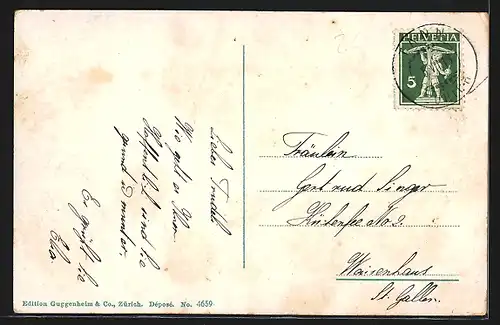 HELVETIA
5
Liebe Trudel
Wie geht es Ihnen
Hoffentlich sind Sie
gesund u. munter.
Es grüsst Sie
Elsa.
Fräulein
Gertrud Singer
No 2.
Waisenhaus
St. Gallen.
Edition Guggenheim & Co., Zürich. Déposé. No. 4659